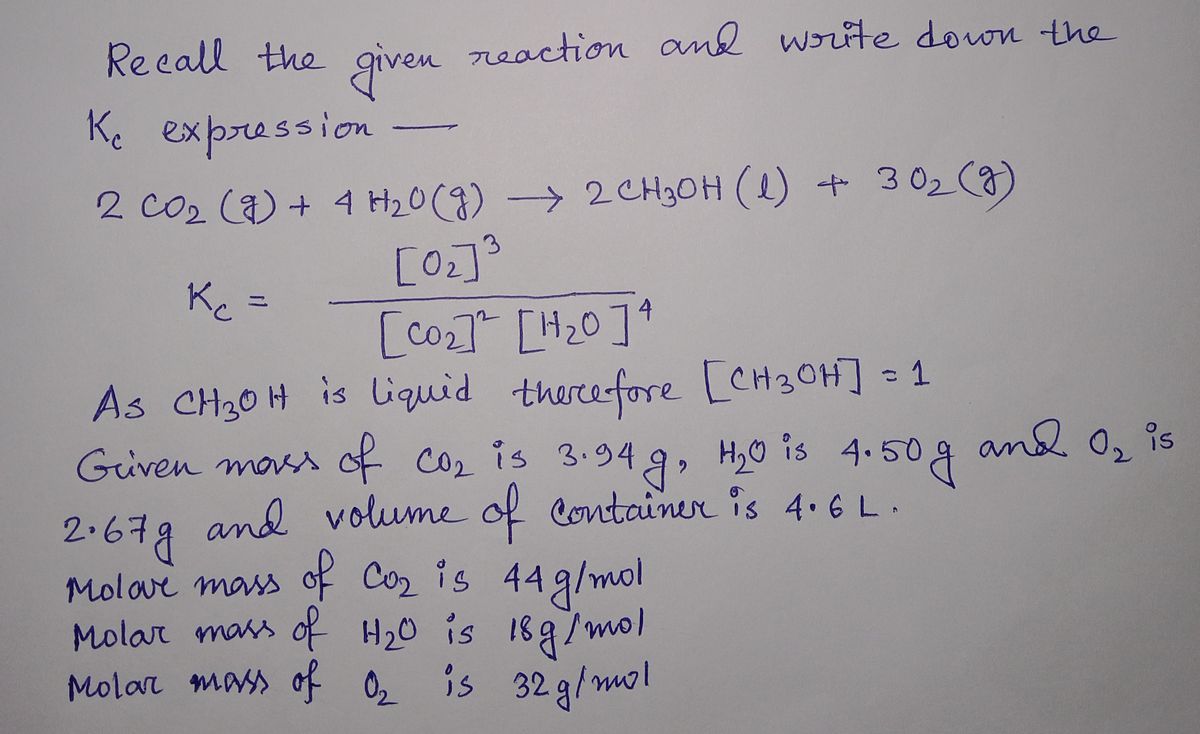 Recall the given reaction and write down the
Kc expression —
2 CO2 (g) + 4 H2O(g) → 2 CH3OH (l) + 3 O2 (g)
Kc = [O2]³ / [CO2]² [H2O]⁴
As CH3OH is liquid therefore [CH3OH] = 1
Given mass of CO2 is 3.94 g, H2O is 4.50 g and O2 is
2.67g and volume of container is 4.6 L.
Molar mass of CO2 is 44 g/mol
Molar mass of H2O is 18g/mol
Molar mass of O2 is 32 g/mol